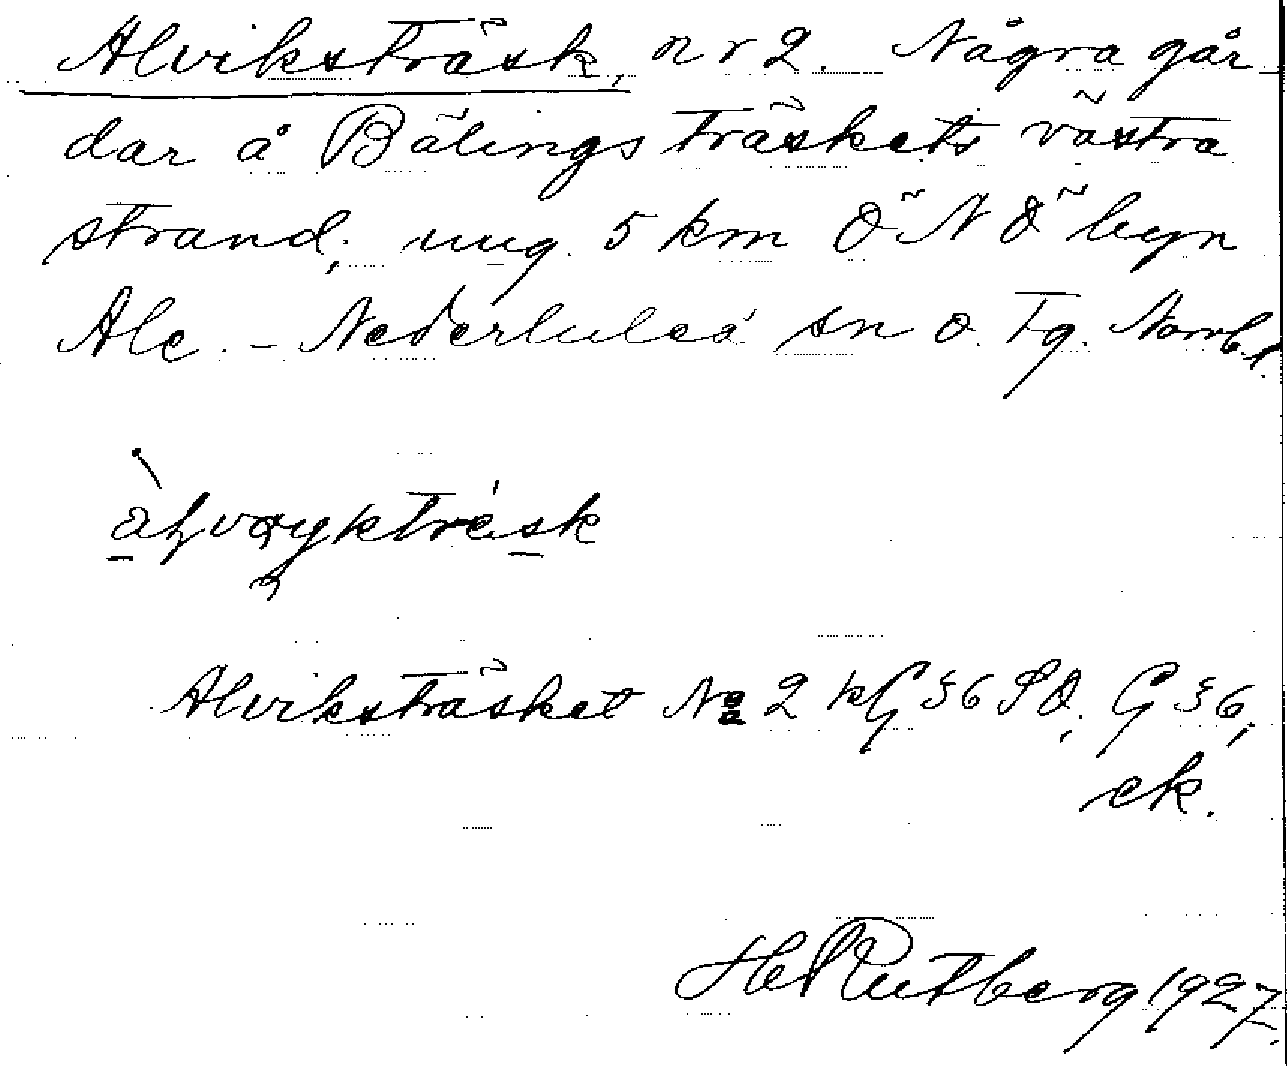 Alviksträsk, nr 2. Några går
dar å Bälingsträskets västra
strand; ung. 5 km Ö N Ö byn
Ale. - Nederluleå sn o. tg. Norrb. l.
Alviksträsket No 2 kG §6 SO, G §6,
ek.
Hel Rutberg 1927.